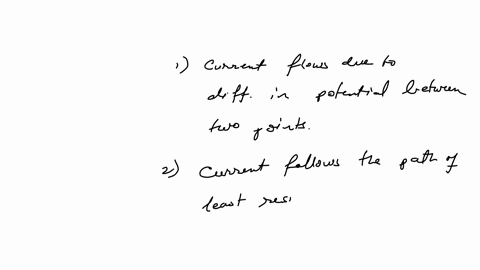 1) Current flows due to
diff. in potential between
two points.
2) Current follows the path of
least res